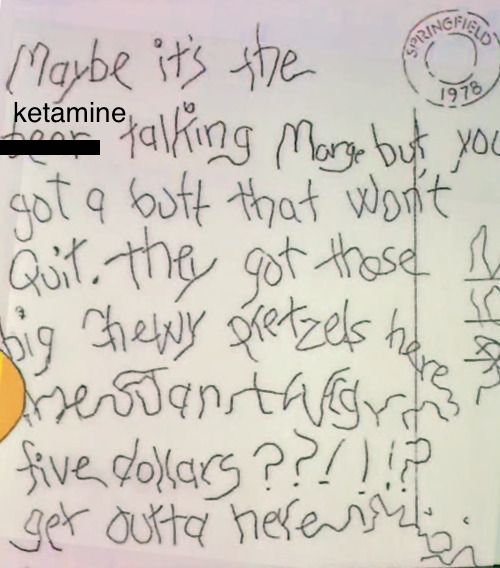 SPRINGFIELD
1978
Maybe it's the
ketamine
talking Marge but you
got a butt that won't
Quit. they got those
big chewy pretzels here
five dollars??!!!?
get outta here